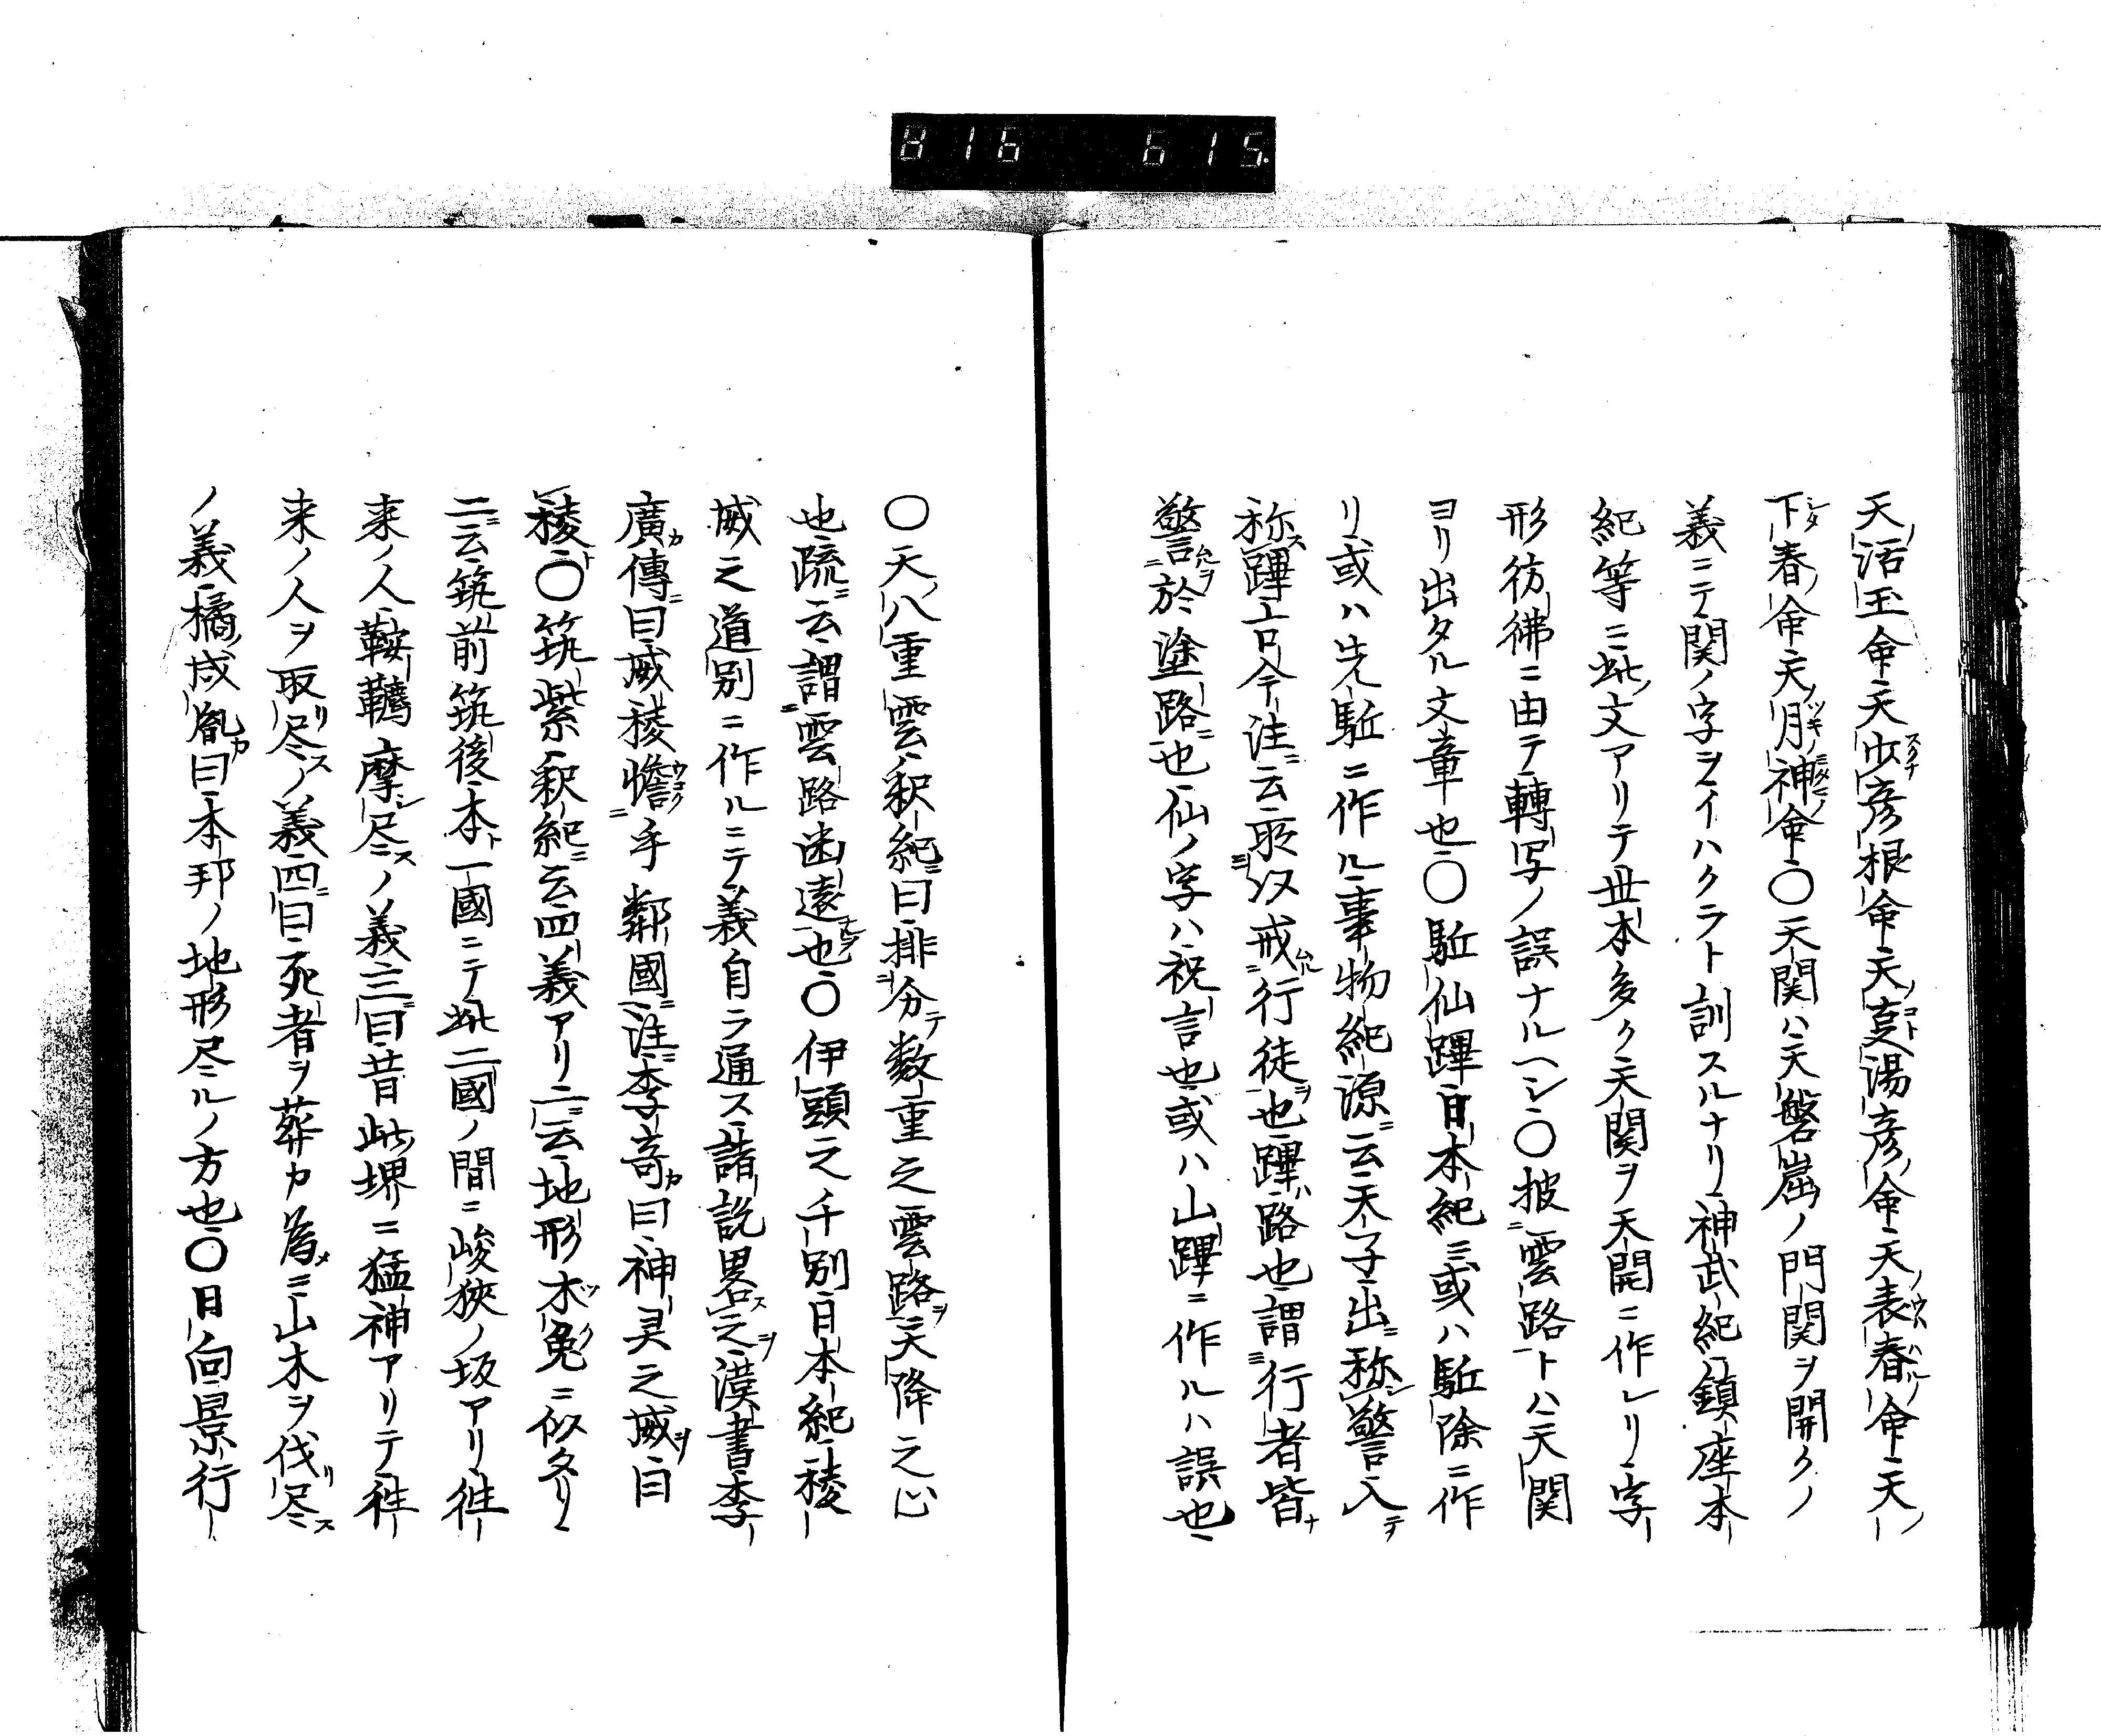 816 615.
天活玉命天少彦根命天㕝湯彦命天表春命天
下春命天月神命〇天関ハ天磐窟ノ門関ヲ開クノ
義ニテ関ノ字ヲイハクラト訓スルナリ神武紀鎮座本
紀等ニ此文アリテ世本多ク天関ヲ天開ニ作レリ字
形彷彿ニ由テ轉写ノ誤ナルヘシ〇披雲路トハ天関
ヨリ出タル文章也〇駈仙蹕日本紀ニ或ハ駈除ニ作
リ或ハ先駈ニ作ル事物紀源ニ云天子出称警入
称蹕古今注ニ云所以戒行徒也蹕路也謂行者皆
警於塗路也仙ノ字ハ祝言也或ハ山蹕ニ作ルハ誤也
〇天八重雲釈紀曰排分数重之雲路天降之心
也疏云謂雲路幽遠也〇伊頭之千別日本紀稜
威之道別ニ作ルニテ義自ラ通ス諸説畧之漢書李
廣傳曰威稜憺乎鄰國注李奇曰神灵之威曰
稜〇筑紫釈紀云四義アリ一云地形木兔ニ似タリ
二云筑前筑後本一國ニテ此二國ノ間ニ峻狹ノ坂アリ徃
来ノ人鞍韉摩尽スノ義三曰昔此堺ニ猛神アリテ徃
来ノ人ヲ取尽スノ義四曰死者ヲ葬カ為ニ山木ヲ伐尽ス
ノ義橘成胤曰本邦ノ地形尽ルノ方也〇日向景行